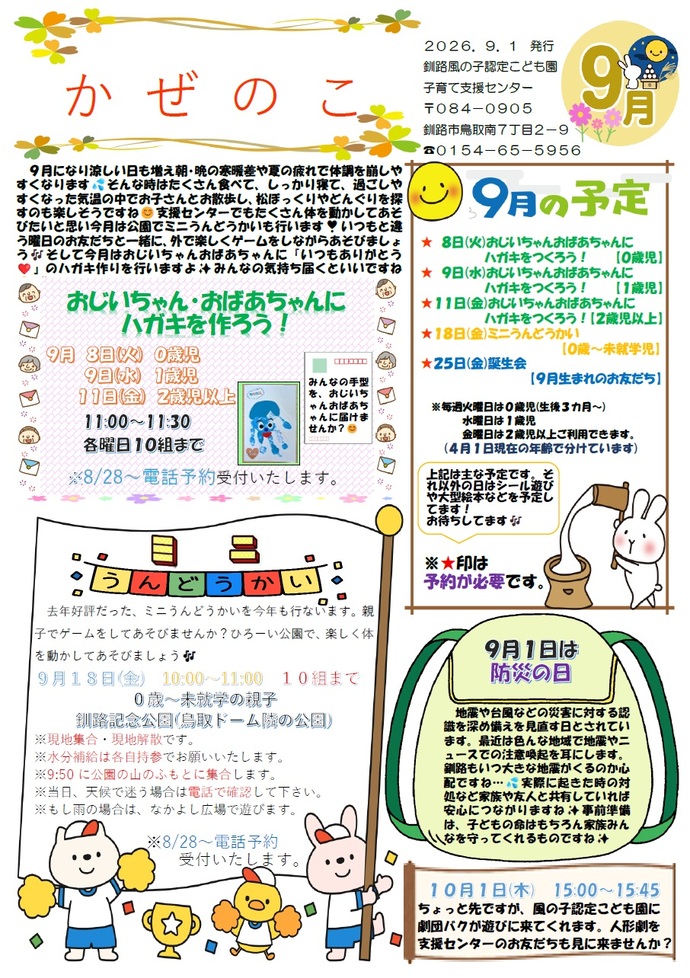 かぜのこ
2026．9．1　発行
釧路風の子認定こども園
子育て支援センター
〒084－0905
釧路市鳥取南7丁目2－9
☎0154－65－5956
9月
９月になり涼しい日も増え朝・晩の寒暖差や夏の疲れで体調を崩しや
すくなります💦そんな時はたくさん食べて、しっかり寝て、過ごしや
すくなった気温の中でお子さんとお散歩し、松ぼっくりやどんぐりを探
すのも楽しそうですね😊支援センターでもたくさん体を動かしてあそ
びたいと思い今月は公園でミニうんどうかいも行います❣いつもと違
う曜日のお友だちと一緒に、外で楽しくゲームをしながらあそびましょ
う🎶そして今月はおじいちゃんおばあちゃんに「いつもありがとう
❤」のハガキ作りを行いますよ✨みんなの気持ち届くといいですね
おじいちゃん・おばあちゃんに
ハガキを作ろう！
9月　8日(火)　0歳児
9日(水)　1歳児
11日(金)　2歳児以上
11:00～11:30
各曜日10組まで
みんなの手型
を、おじいち
ゃんおばあち
ゃんに届けま
せんか？😊
※8/28～電話予約受付いたします。
9月の予定
★　8日(火)おじいちゃんおばあちゃんに
ハガキをつくろう！　【0歳児】
★　9日(水)おじいちゃんおばあちゃんに
ハガキをつくろう！　【1歳児】
★11日(金)おじいちゃんおばあちゃんに
ハガキをつくろう！【2歳児以上】
★18日(金)ミニうんどうかい
【0歳～未就学児】
★25日(金)誕生会
【9月生まれのお友だち】
※毎週火曜日は0歳児(生後３カ月～)
水曜日は１歳児
金曜日は２歳児以上ご利用できます。
(４月１日現在の年齢で分けています)
上記は主な予定です。そ
れ以外の日はシール遊び
や大型絵本などを予定し
てます！
お待ちしてます🎶
※★印は
予約が必要です。
ミニ
うんどうかい
去年好評だった、ミニうんどうかいを今年も行ないます。親
子でゲームをしてあそびませんか？ひろーい公園で、楽しく体
を動かしてあそびましょう🎶
９月１８日(金)　10:00～11:00　１０組まで
０歳～未就学の親子
釧路記念公園(鳥取ドーム隣の公園)
※現地集合・現地解散です。
※水分補給は各自持参でお願いいたします。
※9:50 に公園の山のふもとに集合します。
※当日、天候で迷う場合は電話で確認して下さい。
※もし雨の場合は、なかよし広場で遊びます。
※8/28～電話予約
受付いたします。
9月1日は
防災の日
地震や台風などの災害に対する認
識を深め備えを見直す日とされてい
ます。最近は色んな地域で地震やニ
ュースでの注意喚起を耳にします。
釧路もいつ大きな地震がくるのか心
配ですね…💦実際に起きた時の対
処など家族や友人と共有していれば
安心につながりますね✨事前準備
は、子どもの命はもちろん家族みん
なを守ってくれるものですね✨
１０月１日(木)　15:00～15:45
ちょっと先ですが、風の子認定こども園に
劇団バクが遊びに来てくれます。人形劇を
支援センターのお友だちも見に来ませんか？